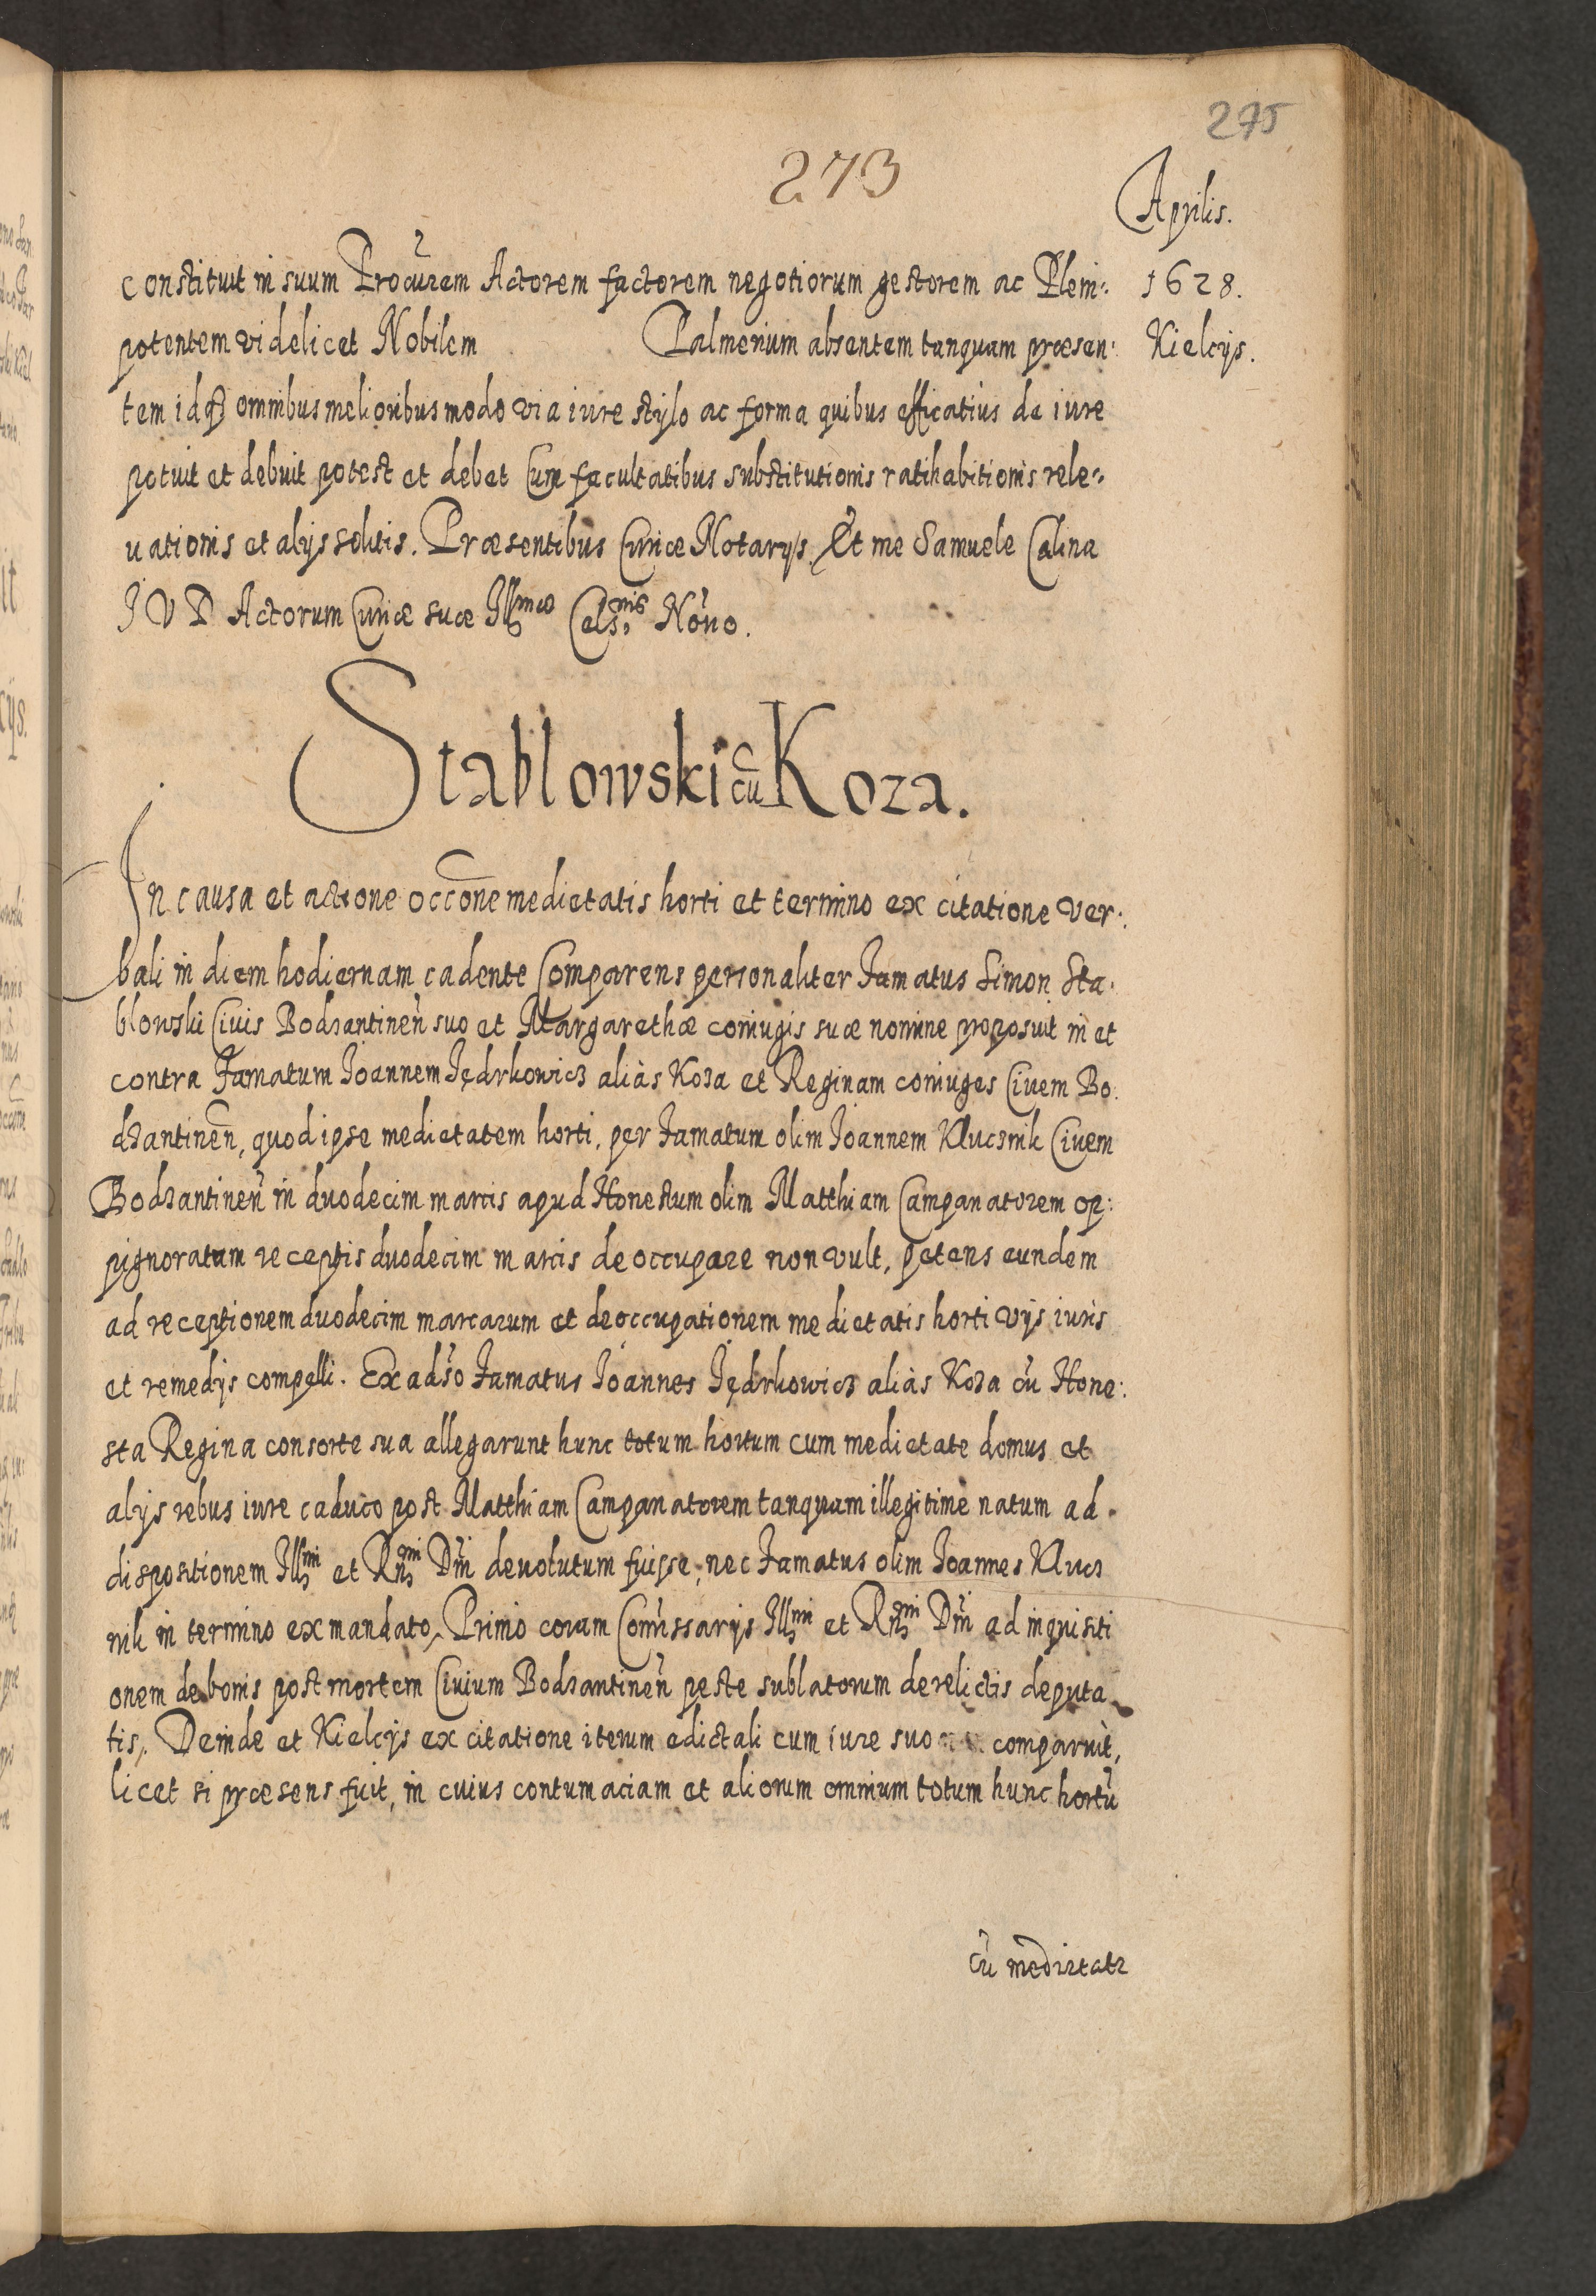 275
273
Aprilis.
constituit in suum Procurem Actorem factorem negotiorum gestorem ac Pleni: 1628.
potentem videlicet Nobilem Palmerium absentem tanquam præsen: Kielcijs.
tem idq3 omnibus melioribus modo via iure stylo ac forma quibus efficatius de iure
potuit et debuit potest et debet Cum facultatibus substitutionis ratihabitionis rele:
uationis et alijs solitis. Præsentibus Curiæ Notarijs. Et me Samuele Calina
I V D Actorum Curiæ suæ Illmæ Celsnis Nono.
Stablowski cu Koza.
In causa et actione occone medietatis horti et termino ex citatione ver:
bali in diem hodiernam cadente Comparens personaliter Famatus Simon Sta:
blowski Ciuis Bodzantinen suo et Margarethæ coniugis suæ nomine proposuit in et
contra Famatum Joannem Jędrkowicz aliàs Koza et Reginam coniuges Ciuem Bo:
dzantinen, quod ipse medietatem horti, per Famatum olim Joannem Klucznik Ciuem
Bodzantinen in duodecim marcis apud Honestum olim Matthiam Campanatorem op:
pignoratam receptis duodecim marcis deoccupare non vult, petens eundem
ad receptionem duodecim marcarum et deoccupationem medietatis horti vijs iuris
et remedijs compelli. Ex adso Famatus Joannes Jędrkowicz aliàs Koza cu Hone:
sta Regina consorte sua allegarunt hunc totum hortum cum medietate domus et
alijs rebus iure caduco post Matthiam Campanatorem tanquam illegitime natum ad
dispositionem Illmi et Rnmi Dni deuolutum fuisse, nec Famatus olim Joannes Klucz
nik in termino ex mandato, Primo coram Comissarijs Illmi et Rnmi Dni ad inquisiti
onem de bonis post mortem Ciuium Bodzantinen peste sublatorum derelictis deputa
tis, Deinde et Kielcijs ex citatione iterum edictali cum iure suo comparuit,
licet si præsens fuit, in cuius contumaciam et aliorum omnium totum hunc hortu
cu medietate